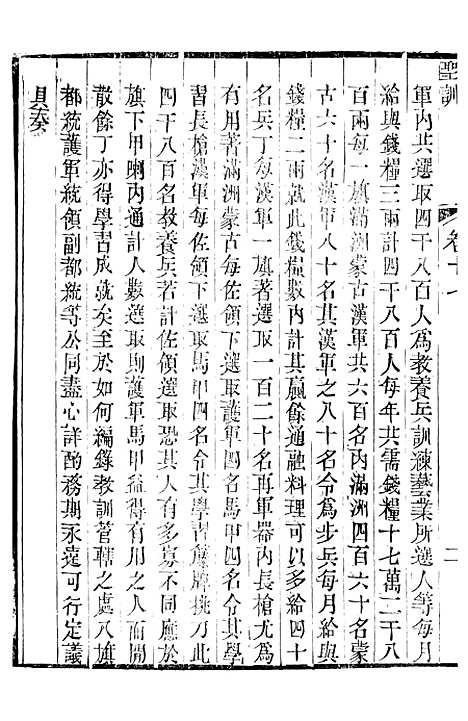 聖訓
卷十七
二
軍內共選取四千八百人爲教養兵訓練藝業所選人等每月
給與錢糧三兩計四千八百人每年共需錢糧十七萬二千八
百兩每一旗滿洲蒙古漢軍共六百名內滿洲四百六十名蒙
古六十名漢軍八十名漢軍之八十名令爲步兵每月給
錢糧二兩就此錢糧數內計其贏餘通融料理可以多給四十
名兵丁每漢軍一旗著選取一百二十名再軍器內長槍尤爲
有用著滿洲蒙古每佐領下選取護軍一名馬甲四名令其學
習長槍漢軍每佐領下選取馬甲四名令其學習籐牌挑刀此
四千八百名教養兵若計佐領選取恐其人有多寡不同應於
旗下甲喇內通計人數選取則護軍馬甲益得有用之人而閒
散餘丁亦得學習成就矣至於如何編錄教訓管轄之處八旗
都統護軍統領副都統等公同盡心詳酌務期永遠可行定議
具奏